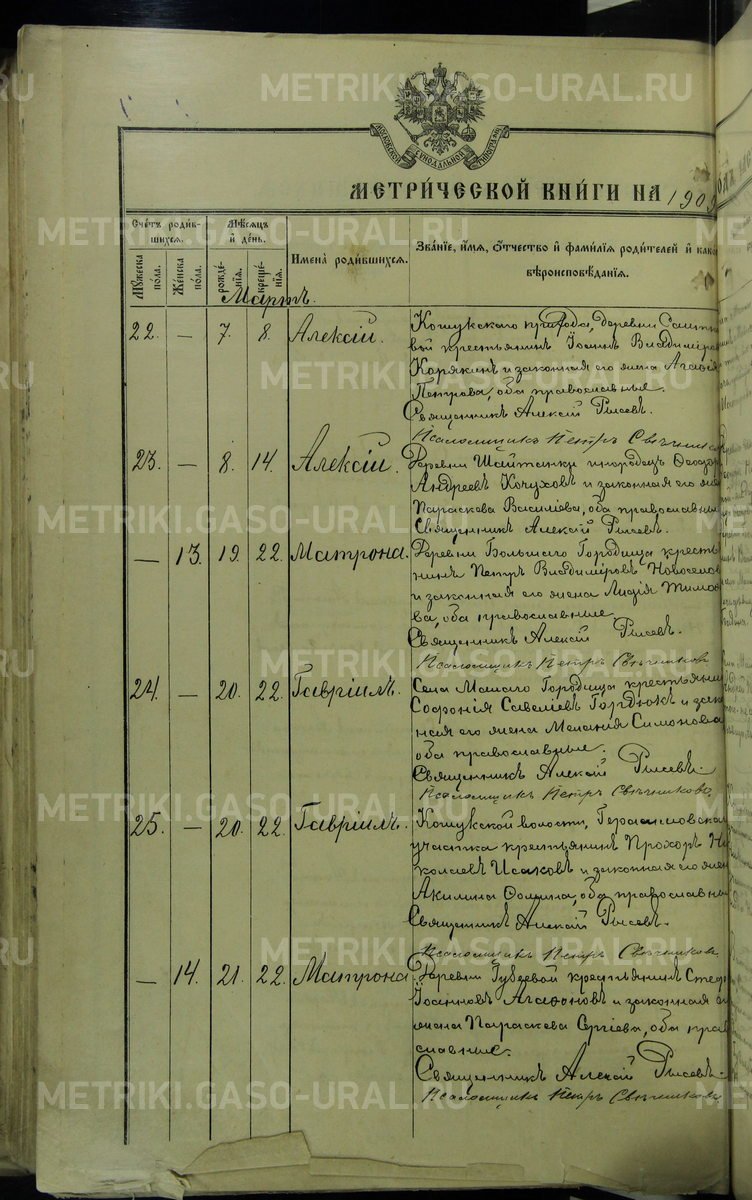 METRIKI.GASO-URAL.RU
МОСКОВСКОЙ СѴНОДАЛЬНОЙ ТИПОГРАФІИ
МЕТРИ́ЧЕСКОЙ КНИ́ГИ НА 190
Сче́тъ роди́в-
шихся.
Мѣ́сяцъ
и҆ де́нь.
Имена̀ роди́вшихся.
Зва́нїе, и҆́мя, ѻ҆́тчество и҆ фамилїя роди́телей и҆ како
вѣроисповѣ́данїя.
Мꙋ́жеска по́ла.
Же́нска по́ла.
рожде́-нїя.
креще́-нїя.
Мартъ.
22. — 7. 8. Алексій. Кошукскаго прихода, деревни
вой крестьянинъ Іоаннъ Владиміров
Корякинъ и законная его жена Агафія
Петрова, оба православные.
Священникъ Алексій Рысевъ.
Псаломщикъ Петръ Свѣчников
23. — 8. 14. Алексій. Деревни Шайтанки инородецъ Ѳеодор
Андреевъ Кочуховъ и законная его же
Параскева Василіева, оба православны
Священникъ Алексій Рысевъ.
— 13. 19. 22. Матрона. Деревни Большаго Городища кресть
нинъ Петръ Владиміровъ Новоселов
и законная его жена Лидія Тимоѳ
ва, оба православные
Священникъ Алексій Рысевъ.
Псаломщикъ Петръ Свѣчников
24. — 20. 22. Гавріилъ. Села Малаго Городища крестьяни
Софонія Савеліевъ Гордюкъ и зако
ная его жена Меланія Симонова
оба православные.
Священникъ Алексій Рысевъ.
Псаломщикъ Петръ Свѣчников
25. — 20. 22. Гавріилъ. Кошукской волости, Герасимовска
участка крестьянинъ Прохоръ Ни
колаевъ Исаковъ и законная его жен
Акилина Ѳомина, оба православны
Священникъ Алексій Рысевъ.
Псаломщикъ Петръ Свѣчников
— 14. 21. 22. Матрона. Деревни Губевой крестьянинъ Стеф
Іоанновъ Агафоновъ и законная
жена Параскева Сергіева, оба прав
славные.
Священникъ Алексій Рысевъ.
Псаломщикъ Петръ Свѣчников